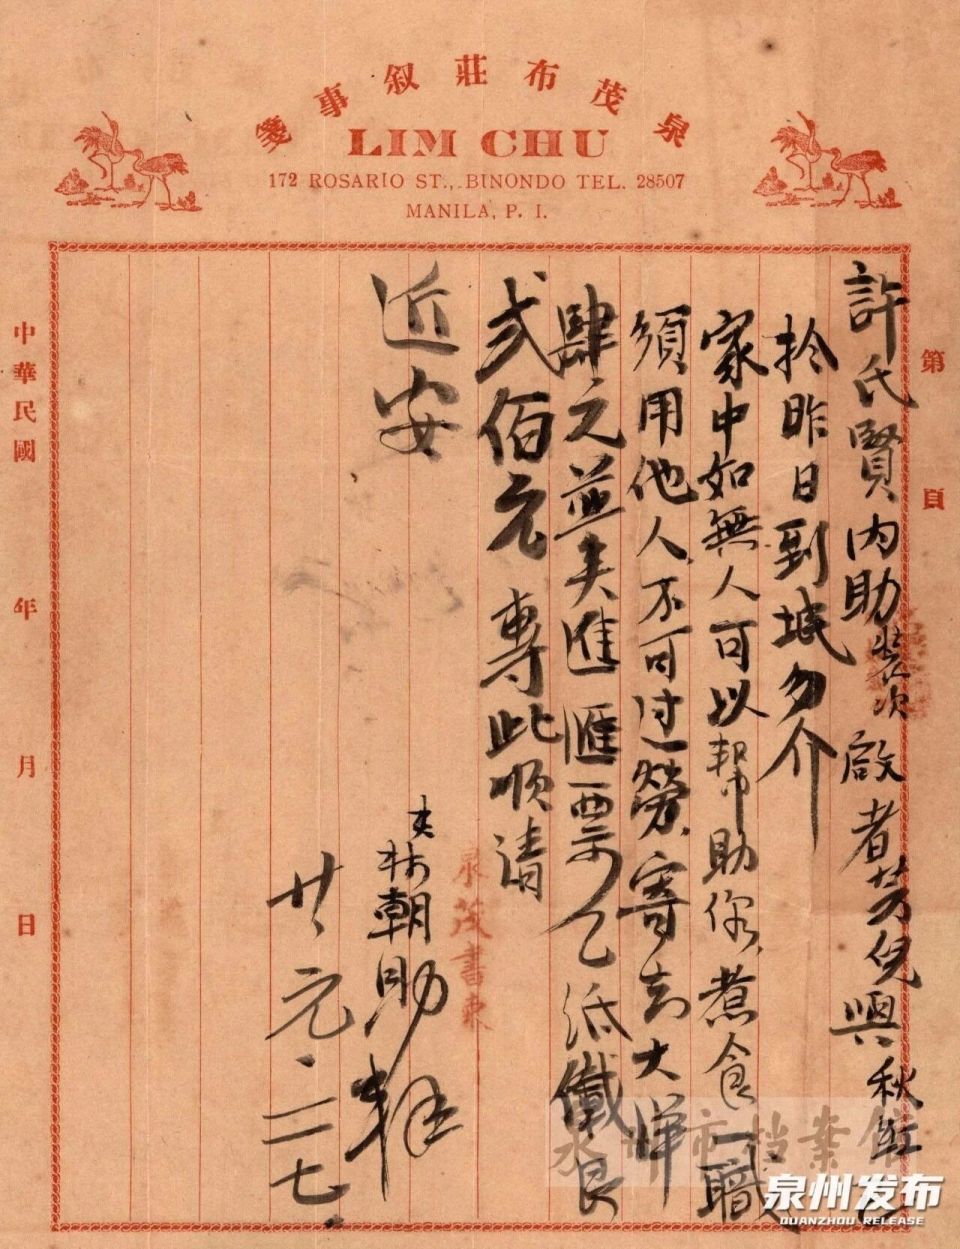 泉茂布莊叙事箋
LIM CHU
172 ROSARIO ST., BINONDO TEL. 28507
MANILA, P. I.
第 頁
許氏賢內助粧次啟者芳兒與秋紅
於昨日到垊勿介
家中如無人可以幫助你煮食一職
須用他人不可过勞寄去大洋
肆元並夹匯票乙紙儎艮
弍佰元專此順請
近安
夫林朝助
泉茂書柬
廿元二七
中華民國 年 月 日
泉州市档案馆
泉州发布
QUANZHOU RELEASE